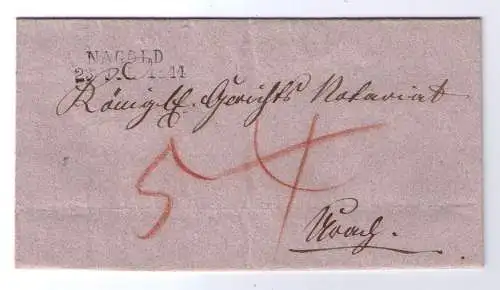 NAGOLD
23 DEC 1844
Königl. Gerichts Notariat
5 4
Urach.